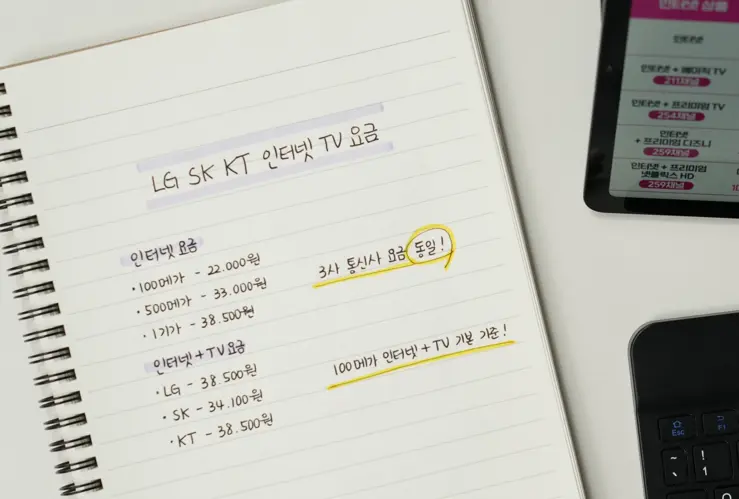 LG SK KT 인터넷 TV 요금
인터넷 요금
·100메가 - 22.000원
·500메가 - 33.000원
·1기가 - 38.500원
3사 통신사 요금 동일!
인터넷+TV요금
·LG - 38.500원
·SK - 34.100원
·KT - 38.500원
100메가 인터넷+TV 기본 기준!
인터넷 상품
인터넷
인터넷 + 베이직 TV
211채널
인터넷 + 프리미엄 TV
254채널
인터넷
+ 프리미엄 디즈니
259채널
인터넷 + 프리미엄
넷플릭스 HD
259채널
Esc
F1
~
!
1